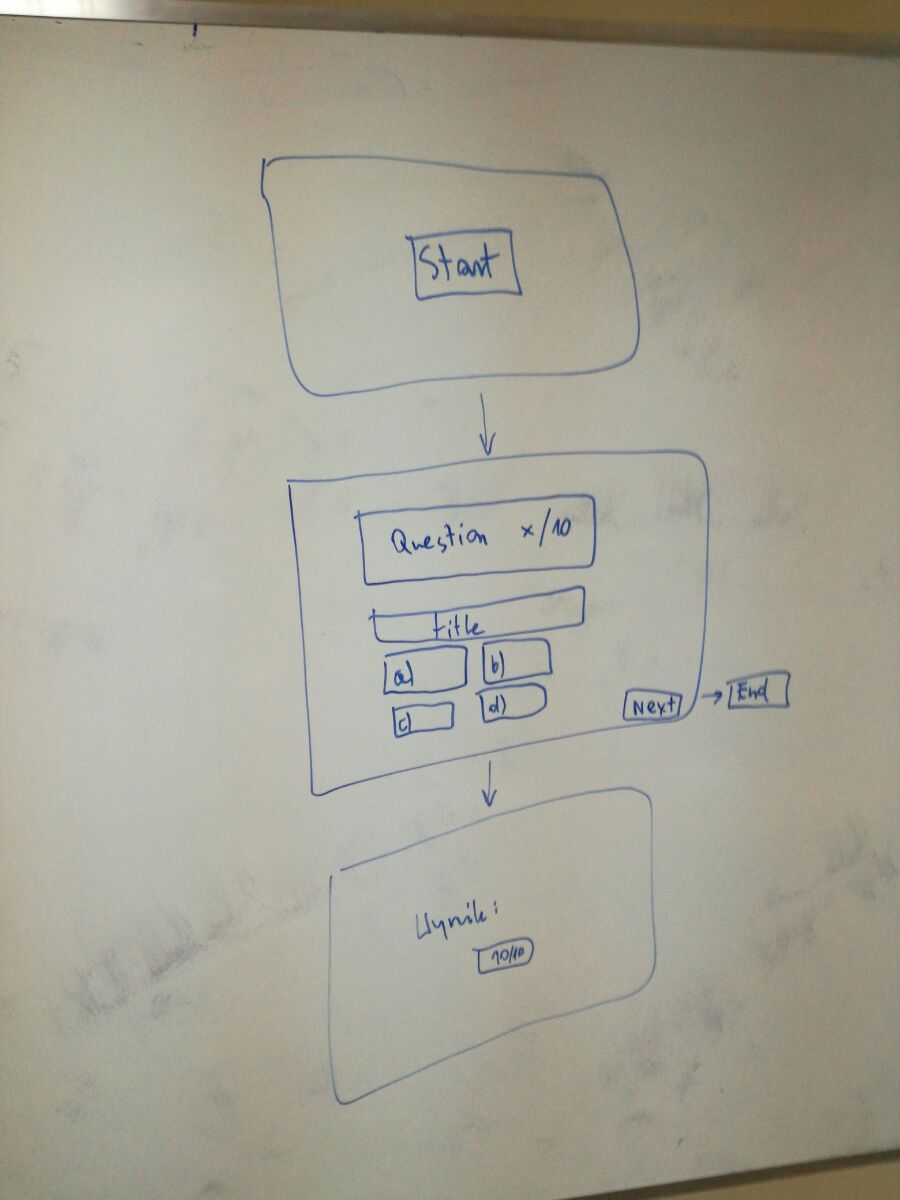 Start
Question x/10
title
a) b)
c) d)
Next → End
Wynik:
10/10